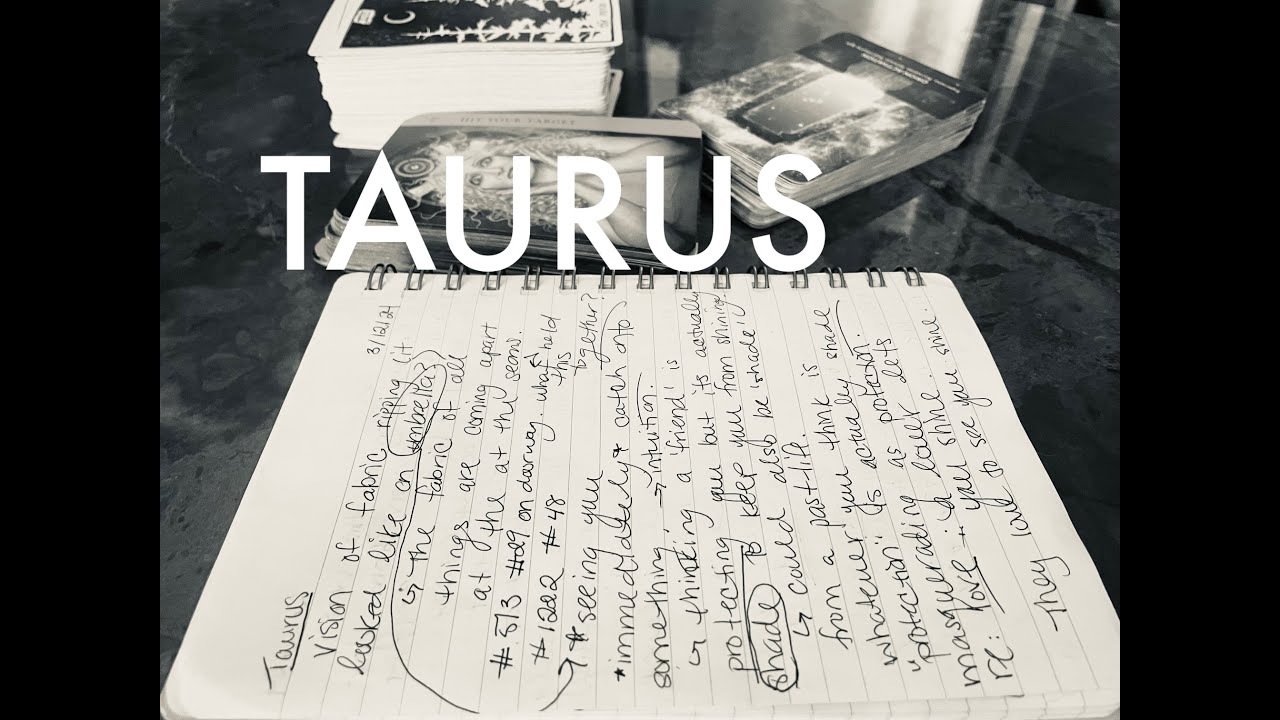 HIT YOUR TARGET
TAURUS
3/12/24
Taurus
Vision of fabric ripping it
looked like an umbrella?
↳ the fabric of all
things are coming apart
at the at the seams.
#513 #29 on doorway. what held
#1222 #48 this
together?
* seeing you
* immediately catch onto
something. → intuition.
↳ thinking a friend is
protecting you but its actually
shade to keep you from shining.
↳ could also be 'shade'
from a past-life.
whatever you think is shade
whatever you actually
is as protection.
"protection" as
masquerading lover lets
re: love: u shine.
you shine.
They love to see you shine.